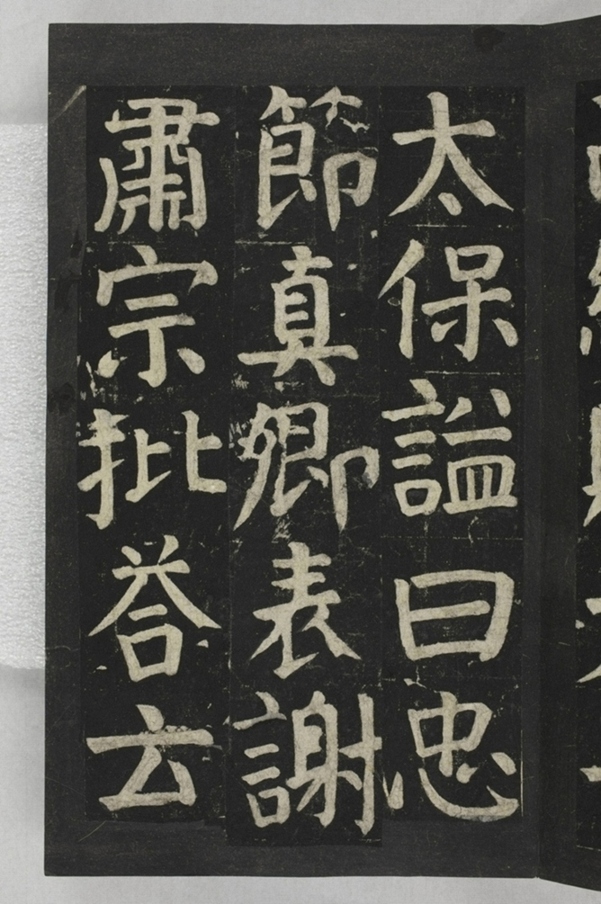 太保謚曰忠
節真卿表謝
肅宗批荅云